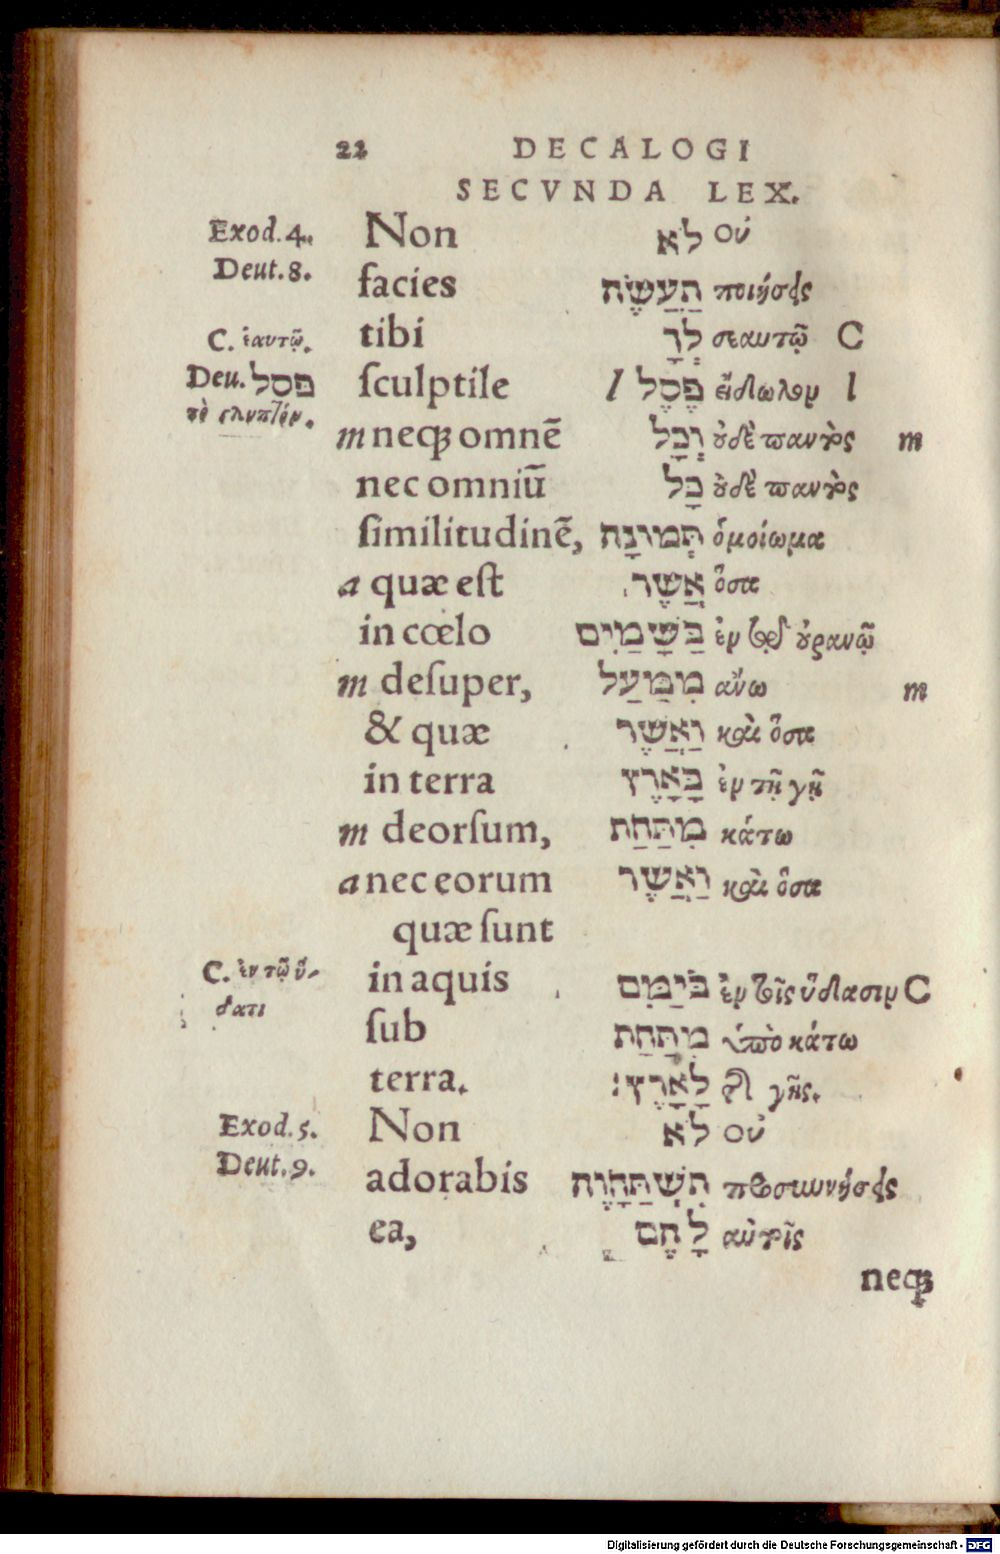 22 DECALOGI
SECVNDA LEX.
Exod. 4. Non לא οὐ
Deut. 8. facies תַעֲשֶׂה ποιήσεις
C. ἑαυτῷ. tibi לְךָ σεαυτῷ C
Deu. פסל ſculptile l פֶסֶל εἴδωλον l
τὸ γλυπτόν. m neqȝ omnē וְכָל οὐδὲ παντὸς m
nec omniū כָל οὐδὲ παντὸς
ſimilitudinē, תְּמוּנָה ὁμοίωμα
a quæ eſt אֲשֶׁר ὅσα
in cœlo בַּשָּׁמַיִם ἐν τῷ οὐρανῷ
m deſuper, מִמַּעַל ἄνω m
& quæ וַאֲשֶׁר καὶ ὅσα
in terra בָּאָרֶץ ἐν τῇ γῇ
m deorſum, מִתַּחַת κάτω
a nec eorum וַאֲשֶׁר καὶ ὅσα
quæ ſunt
C. ἐν τῷ ὕ- in aquis בַּמַּיִם ἐν τοῖς ὕδασιν C
δατι ſub מִתַּחַת ὑποκάτω
terra. לָאָרֶץ׃ τῆς γῆς.
Exod. 5. Non לא οὐ
Deut. 9. adorabis תִשְׁתַּחֲוֶה προσκυνήσεις
ea, לָהֶם αὐτοῖς
neqȝ
Digitalisierung gefördert durch die Deutsche Forschungsgemeinschaft - DFG